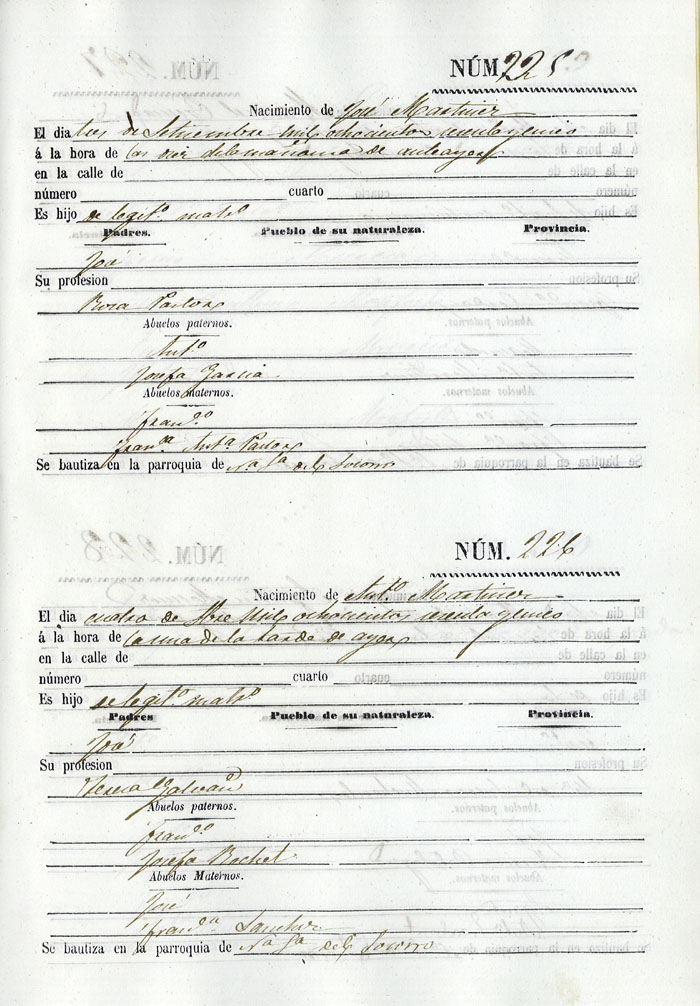 NÚM 225
Nacimiento de José Martinez
El dia tres de Setiembre mil ochocientos
á la hora de las diez de la mañana de anteayer
en la calle de
número cuarto
Es hijo de legit.º mat.º
Padres. Pueblo de su naturaleza. Provincia.
José
Su profesion
Rosa Pastor
Abuelos paternos.
Ant.º
Josefa Garcia
Abuelos maternos.
Fran.co
Fran.ca Ant.a Pastor
Se bautiza en la parroquia de N.a S.a del Socorro
NÚM. 226
Nacimiento de Ant.º Martinez
El dia cuatro de mil ochocientos
á la hora de la una de la tarde de ayer
en la calle de
número cuarto
Es hijo de legit.º mat.º
Padres Pueblo de su naturaleza. Provincia.
José
Su profesion
Teresa Galvañ
Abuelos paternos.
Fran.co
Josefa
Abuelos Maternos.
José
Fran.ca Sanchez
Se bautiza en la parroquia de N.a S.a del Socorro